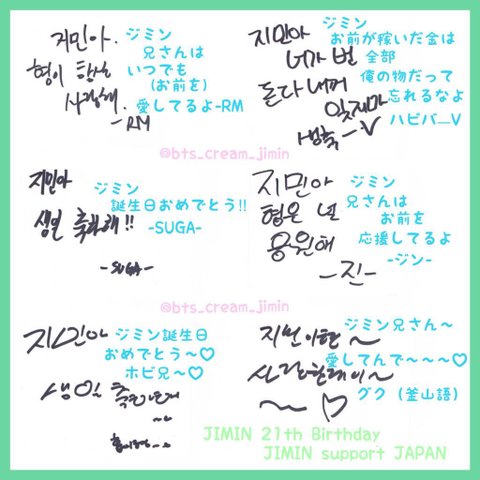 지민아.
형이 항상
사랑해.
-RM
ジミン
兄さんは
いつでも
(お前を)
愛してるよ-RM
지민아
너가 번
돈 다 내꺼
잊지마
생축 -V
ジミン
お前が稼いだ金は
全部
俺の物だって
忘れるなよ
ハピバ_V
@bts_cream_jimin
지민아
생일 축하해!!
-SUGA-
ジミン
誕生日おめでとう!!
-SUGA-
지민아
형은 널
응원해
-진-
ジミン
兄さんは
お前を
応援してるよ
-ジン-
@bts_cream_jimin
지민아
생일
ジミン誕生日
おめでとう〜♡
ホビ兄〜♡
지민이형~
~♡
ジミン兄さん〜
愛してんで〜〜〜♡
グク（釜山語）
JIMIN 21th Birthday
JIMIN support JAPAN